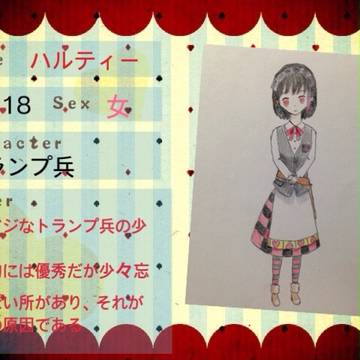 e ハルティー
18 Sex 女
racter
ランプ兵
er
ジなトランプ兵の少
的には優秀だが少々忘
い所があり、それが
原因である